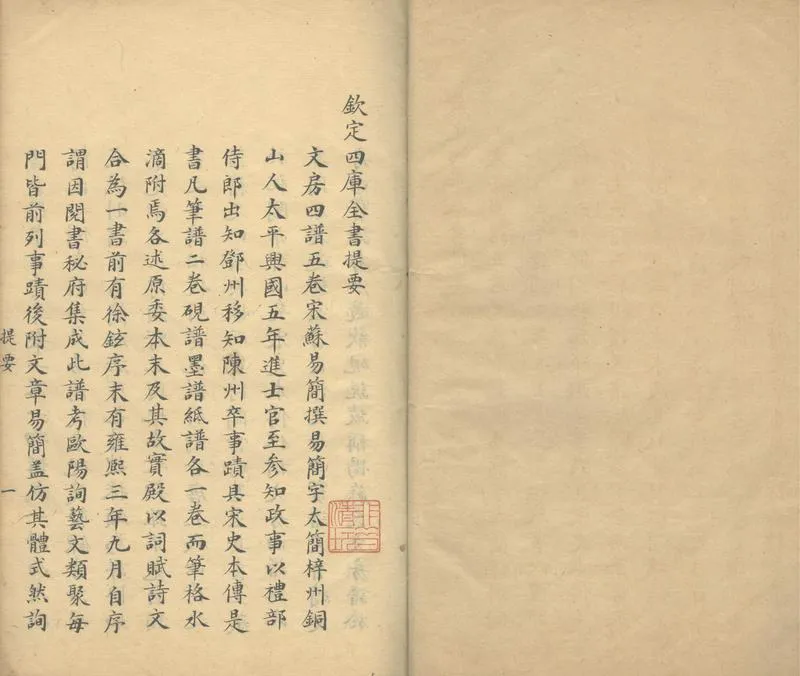 欽定四庫全書提要
文房四譜五卷宋蘇易簡撰易簡字太簡梓州銅
山人太平興國五年進士官至參知政事以禮部
侍郎出知鄧州移知陳州卒事蹟具宋史本傳是
書凡筆譜二卷硯譜墨譜紙譜各一卷而筆格水
滴附焉各述原委本末及其故實殿以詞賦詩文
合為一書前有徐鉉序末有雍熙三年九月自序
謂因閱書秘府集成此譜考歐陽詢藝文類聚每
門皆前列事蹟後附文章易簡盖仿其體式然詢
提要
一